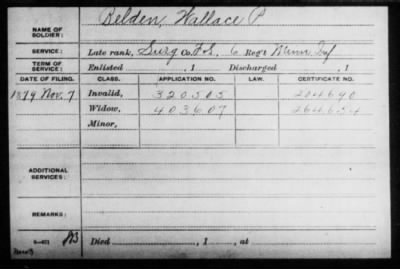 Belden, Wallace P
NAME OF SOLDIER:
SERVICE: Late rank, Surg Co. F&S, 6 Reg't Minn Inf
TERM OF SERVICE: Enlisted , 1 Discharged , 1
DATE OF FILING. CLASS. APPLICATION NO. LAW. CERTIFICATE NO.
1879 Nov. 7 Invalid, 320505 204690
Widow, 403607 264654
Minor,
ADDITIONAL SERVICES:
REMARKS:
Died , 1 , at